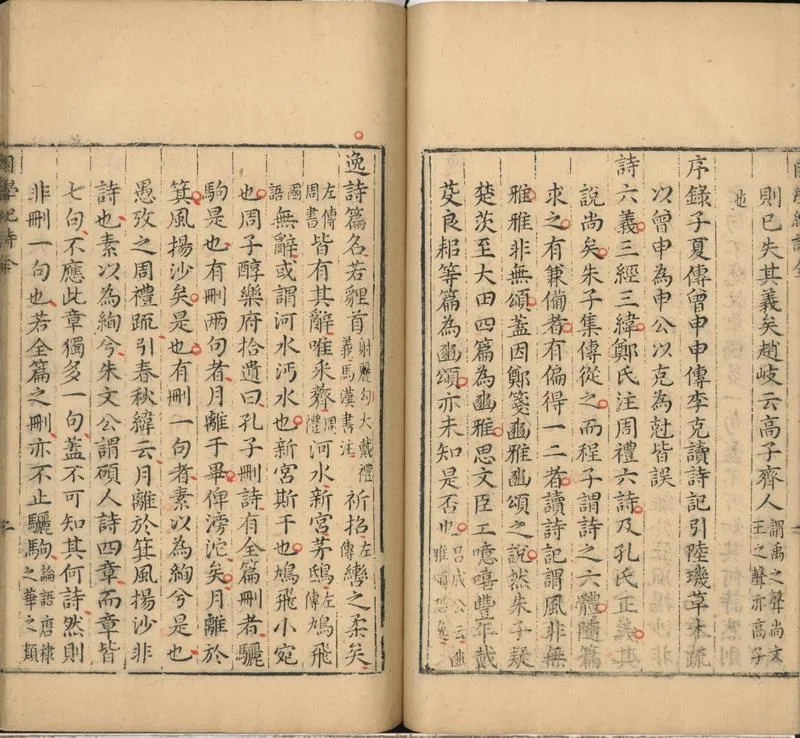 則已失其義矣趙岐云高子齊人謂禹之聲尚文王之聲亦高子
也
序錄子夏傳曾申申傳李克讀詩記引陸璣草木疏
以曾申為申公以克為尅皆誤
詩六義三經三緯鄭氏注周禮六詩及孔氏正義其
說尚矣朱子集傳從之而程子謂詩之六體隨篇
求之有兼備者有偏得一二者讀詩記謂風非無
雅雅非無頌蓋因鄭箋豳雅豳頌之說然朱子疑
楚茨至大田四篇為豳雅思文臣工噫嘻豐年載
芟良耜等篇為豳頌亦未知是否也呂成公云豳雅頌恐逸
逸詩篇名若貍首射義驪勾大戴禮漢書注祈招左傳轡之柔矣
左傳周書皆有其辭唯采薺周禮河水新宮茅鴟左傳鳩飛
國語無辭或謂河水沔水也新宮斯干也鳩飛小宛
也周子醇樂府拾遺曰孔子刪詩有全篇刪者驪
駒是也有刪兩句者月離于畢俾滂沱矣月離於
箕風揚沙矣是也有刪一句者素以為絢兮是也
愚攷之周禮疏引春秋緯云月離於箕風揚沙非
詩也素以為絢兮朱文公謂碩人詩四章而章皆
七句不應此章獨多一句蓋不可知其何詩然則
非刪一句也若全篇之刪亦不止驪駒論語唐棣之華之類